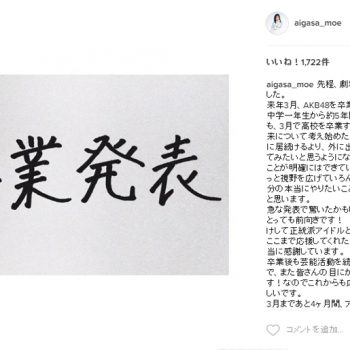 aigasa_moe
いいね！1,722件
業発表
aigasa_moe 先程、劇
した。
来年3月、AKB48を卒業
中学一年生から約5年
も、3月で高校を卒業す
来について考え始めた
に居続けるより、外に出
てみたいと思うようにな
ことが明確にはできてい
っと視野を広げていろん
分の本当にやりたいこ
と思います。
急な発表で驚いたかも
とっても前向きです！
けして正統派アイドルと
ここまで応援してくれた
当に感謝しています。
卒業後も芸能活動を続
で、また皆さんの目にか
す！なのでこれからも応
しいです。
3月まであと4ヶ月間、ア
コメントを追加...